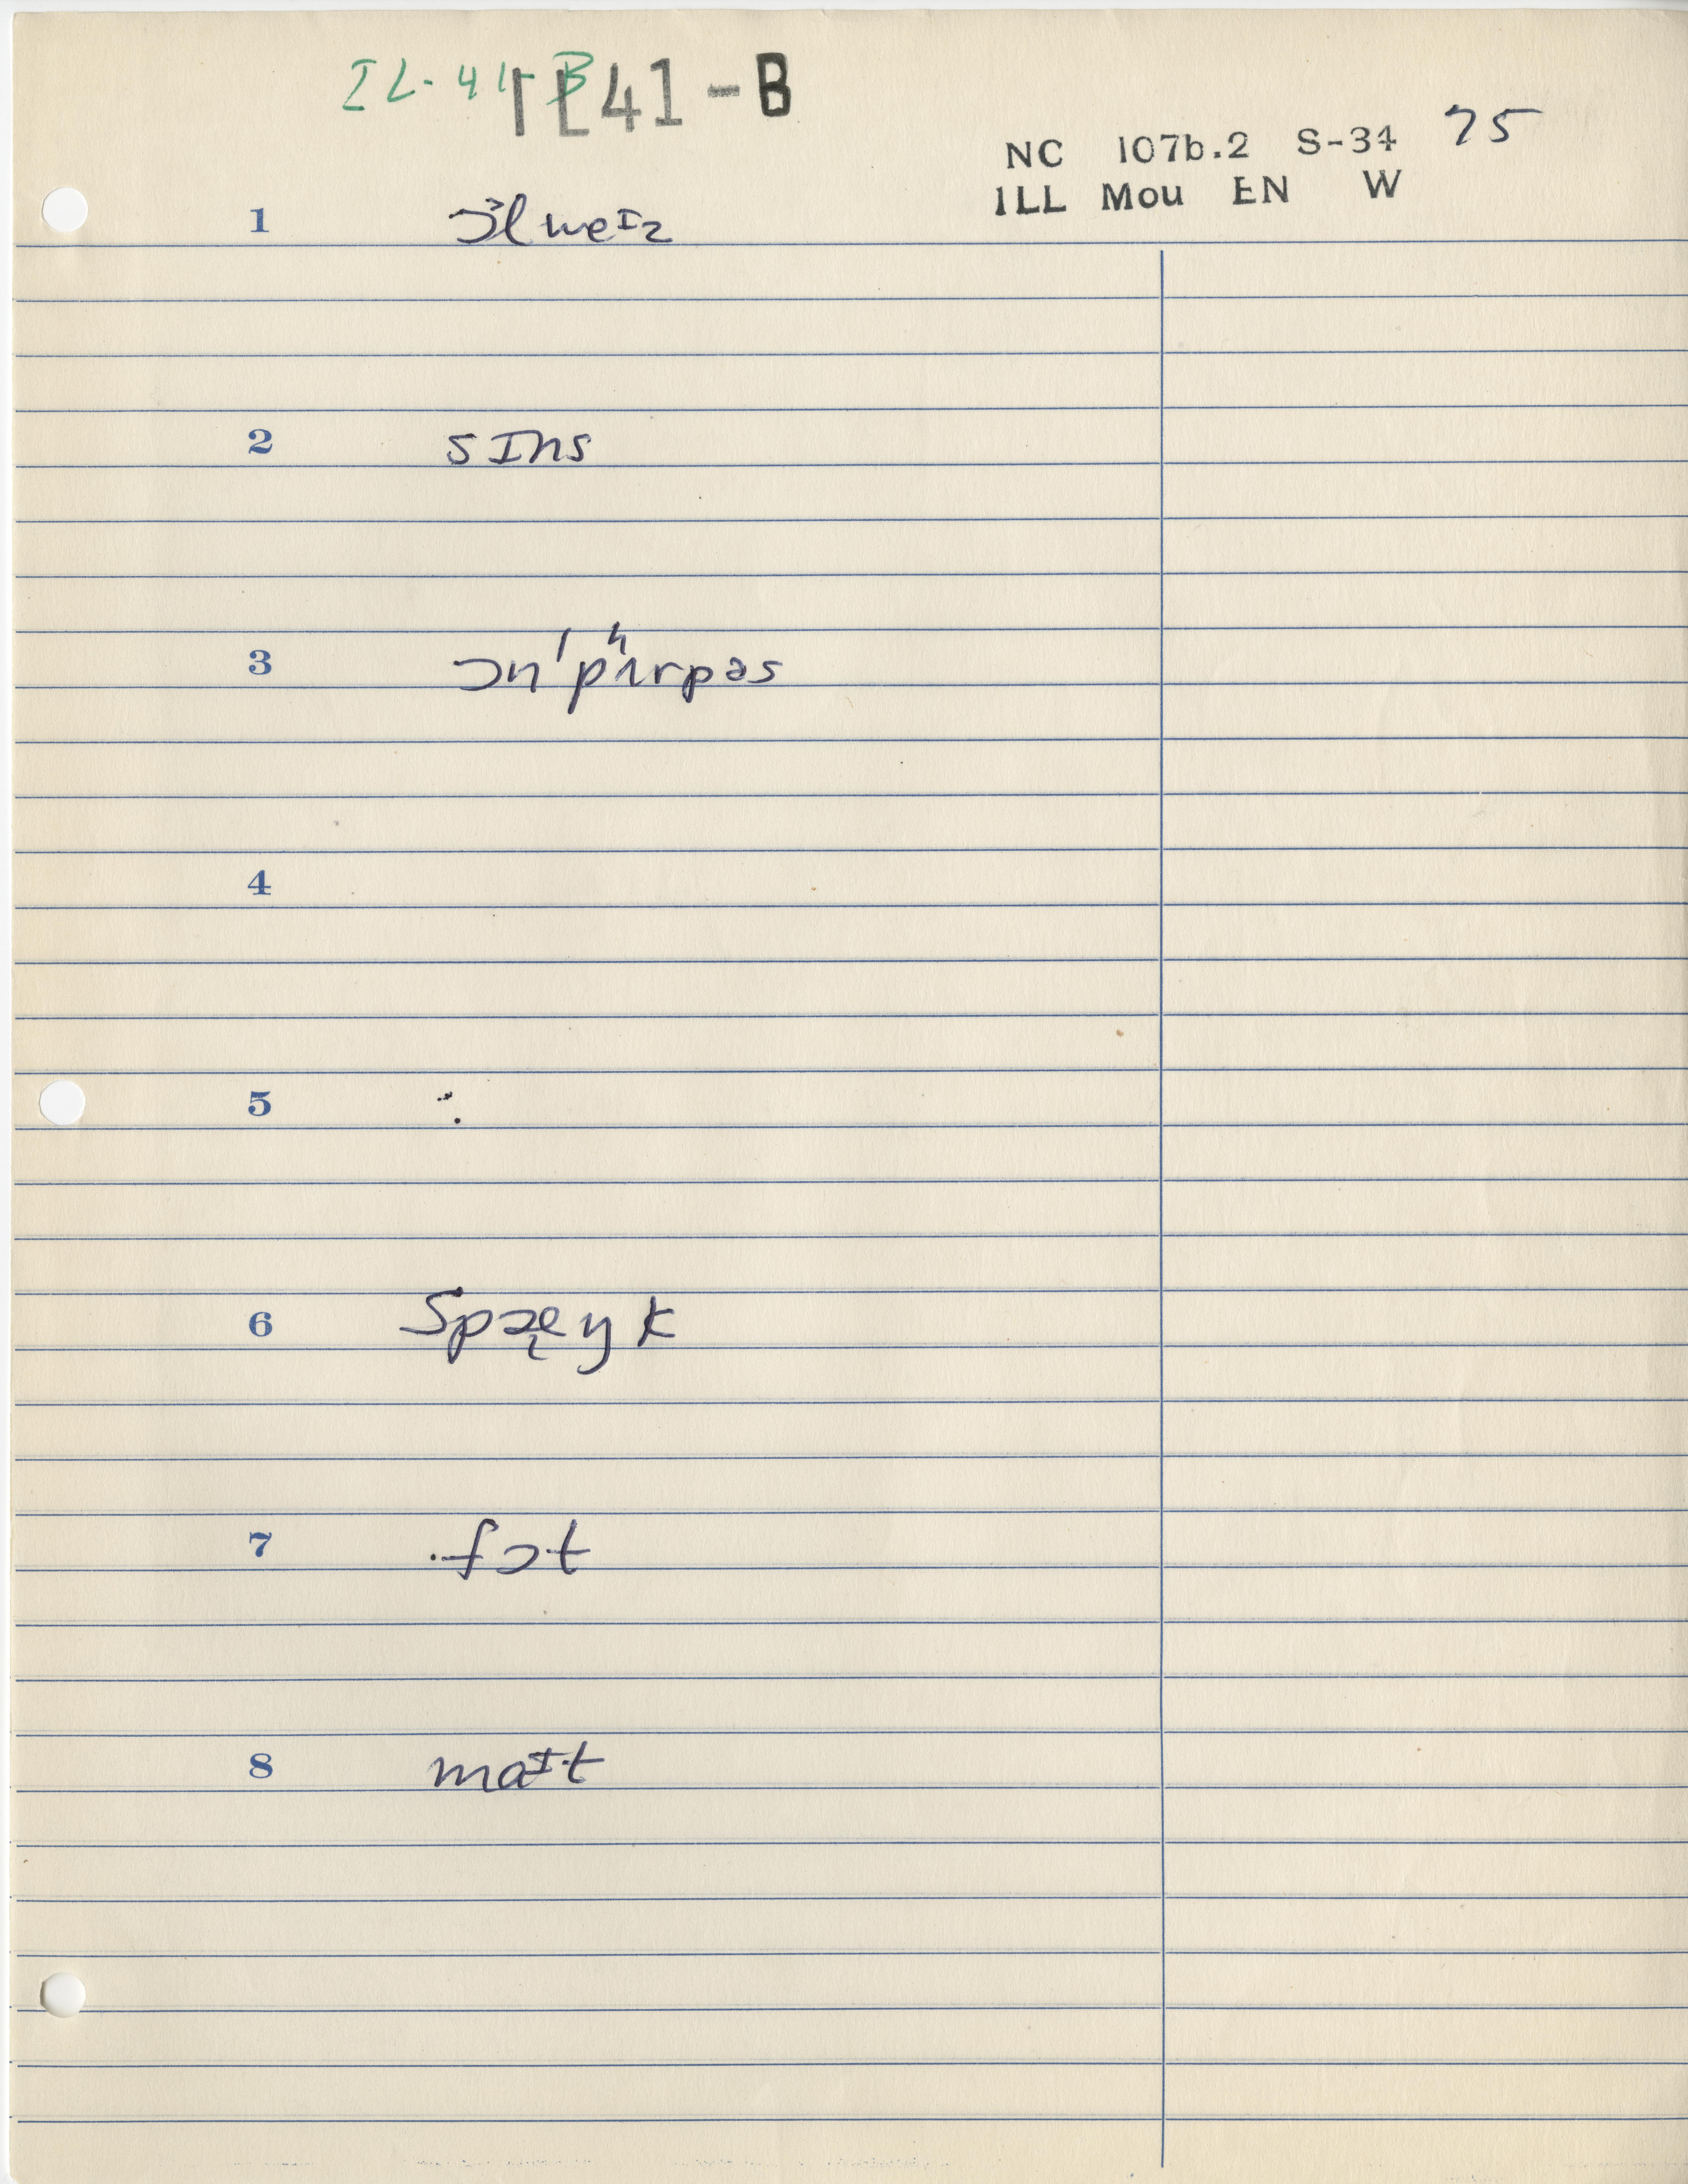 IL-41-B IL41-B
NC 107b.2 S-34 75
ILL Mou EN W
1 ɔ˃lweɪz
2 sɪns
3 ɔn'pʰɝpəs
4
5
6 spɔ̨eyk
7 fɔt
8 maɪt